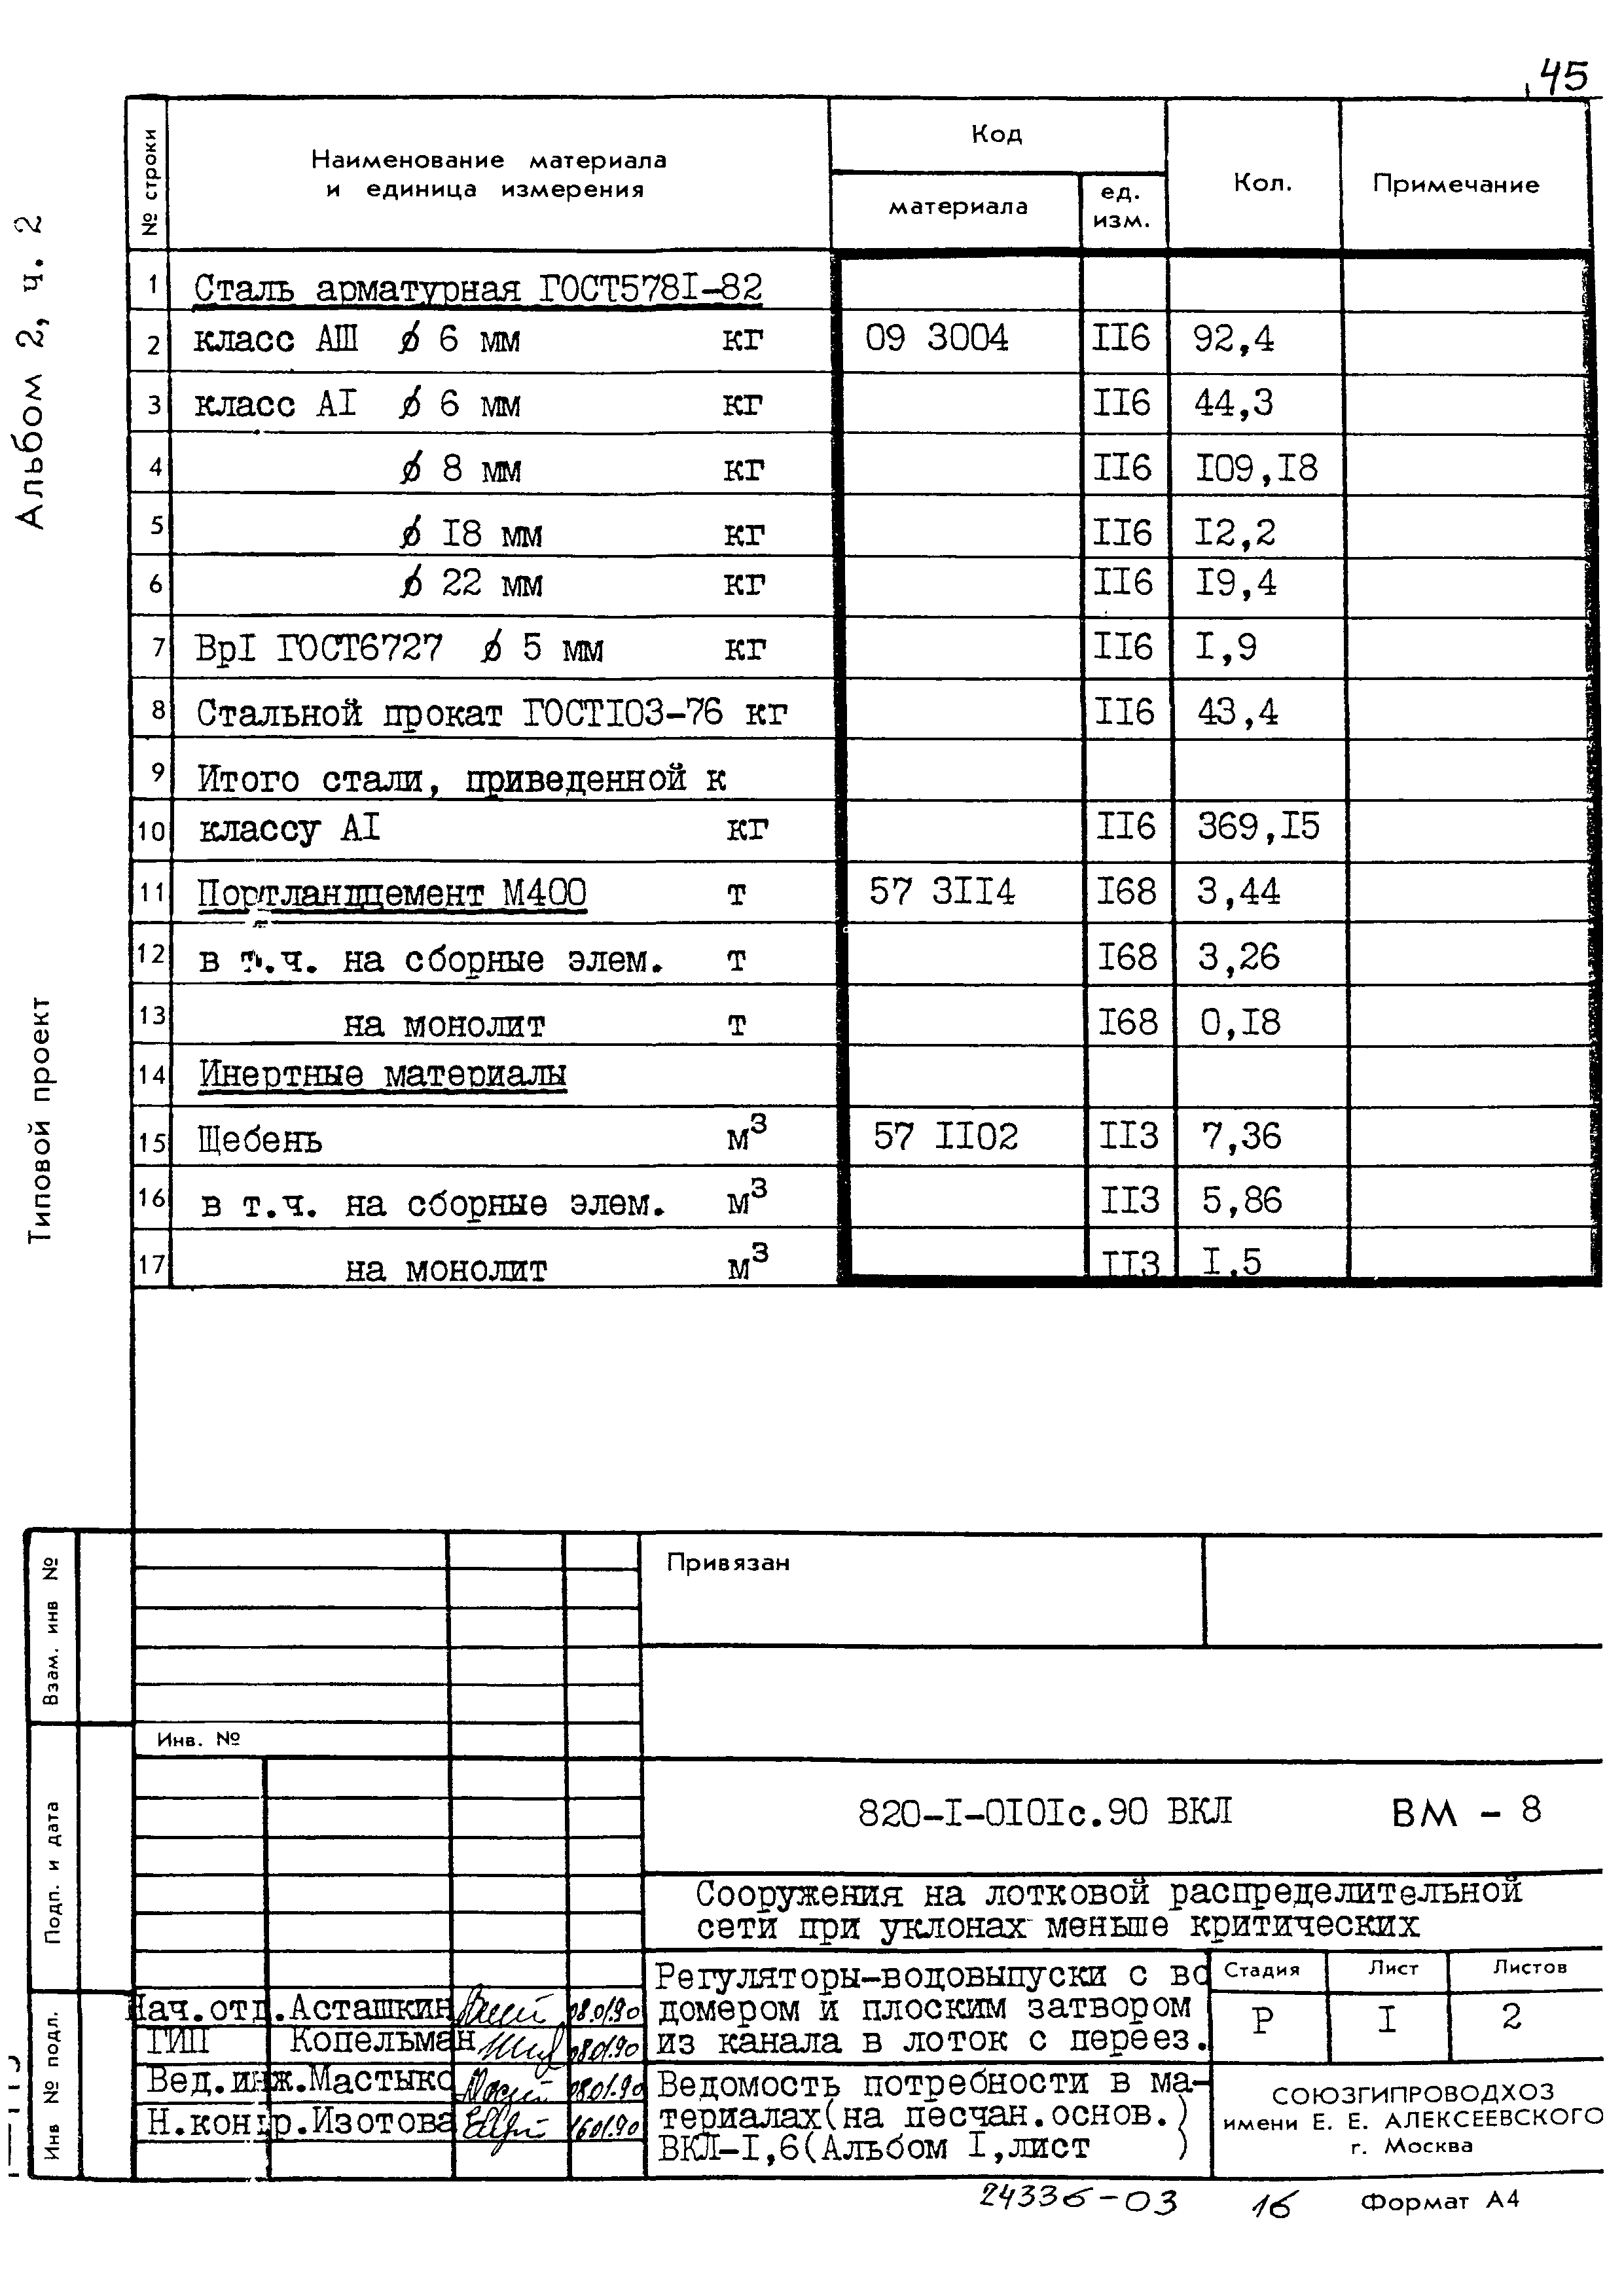 45
Альбом 2, ч. 2
Типовой проект
№ строки
Наименование материала
и единица измерения
Код
материала
ед.
изм.
Кол.
Примечание
1 Сталь арматурная ГОСТ5781-82
2 класс АШ ϕ 6 мм кг 09 3004 II6 92,4
3 класс АI ϕ 6 мм кг II6 44,3
4 ϕ 8 мм кг II6 I09,I8
5 ϕ I8 мм кг II6 I2,2
6 ϕ 22 мм кг II6 I9,4
7 ВрI ГОСТ6727 ϕ 5 мм кг II6 I,9
8 Стальной прокат ГОСТI03-76 кг II6 43,4
9 Итого стали, приведенной к
10 классу АI кг II6 369,I5
11 Портландцемент М400 т 57 3II4 I68 3,44
12 в т.ч. на сборные элем. т I68 3,26
13 на монолит т I68 0,I8
14 Инертные материалы
15 Щебень м³ 57 II02 II3 7,36
16 в т.ч. на сборные элем. м³ II3 5,86
17 на монолит м³ II3 I.5
Взам. инв №
Подп. и дата
Инв № подл.
Привязан
Инв. №
820-I-0I0Iс.90 ВКЛ ВМ - 8
Сооружения на лотковой распределительной
сети при уклонах меньше критических
Регуляторы-водовыпуски с во
домером и плоским затвором
из канала в лоток с переез.
Стадия Лист Листов
Р I 2
Нач.отд.Асташкин 08.01.90
ГИП Копельман 08.01.90
Вед.инж.Мастыко 08.01.90
Н.контр.Изотова 16.01.90
Ведомость потребности в ма-
териалах(на песчан.основ.)
ВКЛ-I,6(Альбом I,лист )
СОЮЗГИПРОВОДХОЗ
имени Е. Е. АЛЕКСЕЕВСКОГО
г. Москва
24336-03 16 Формат А4